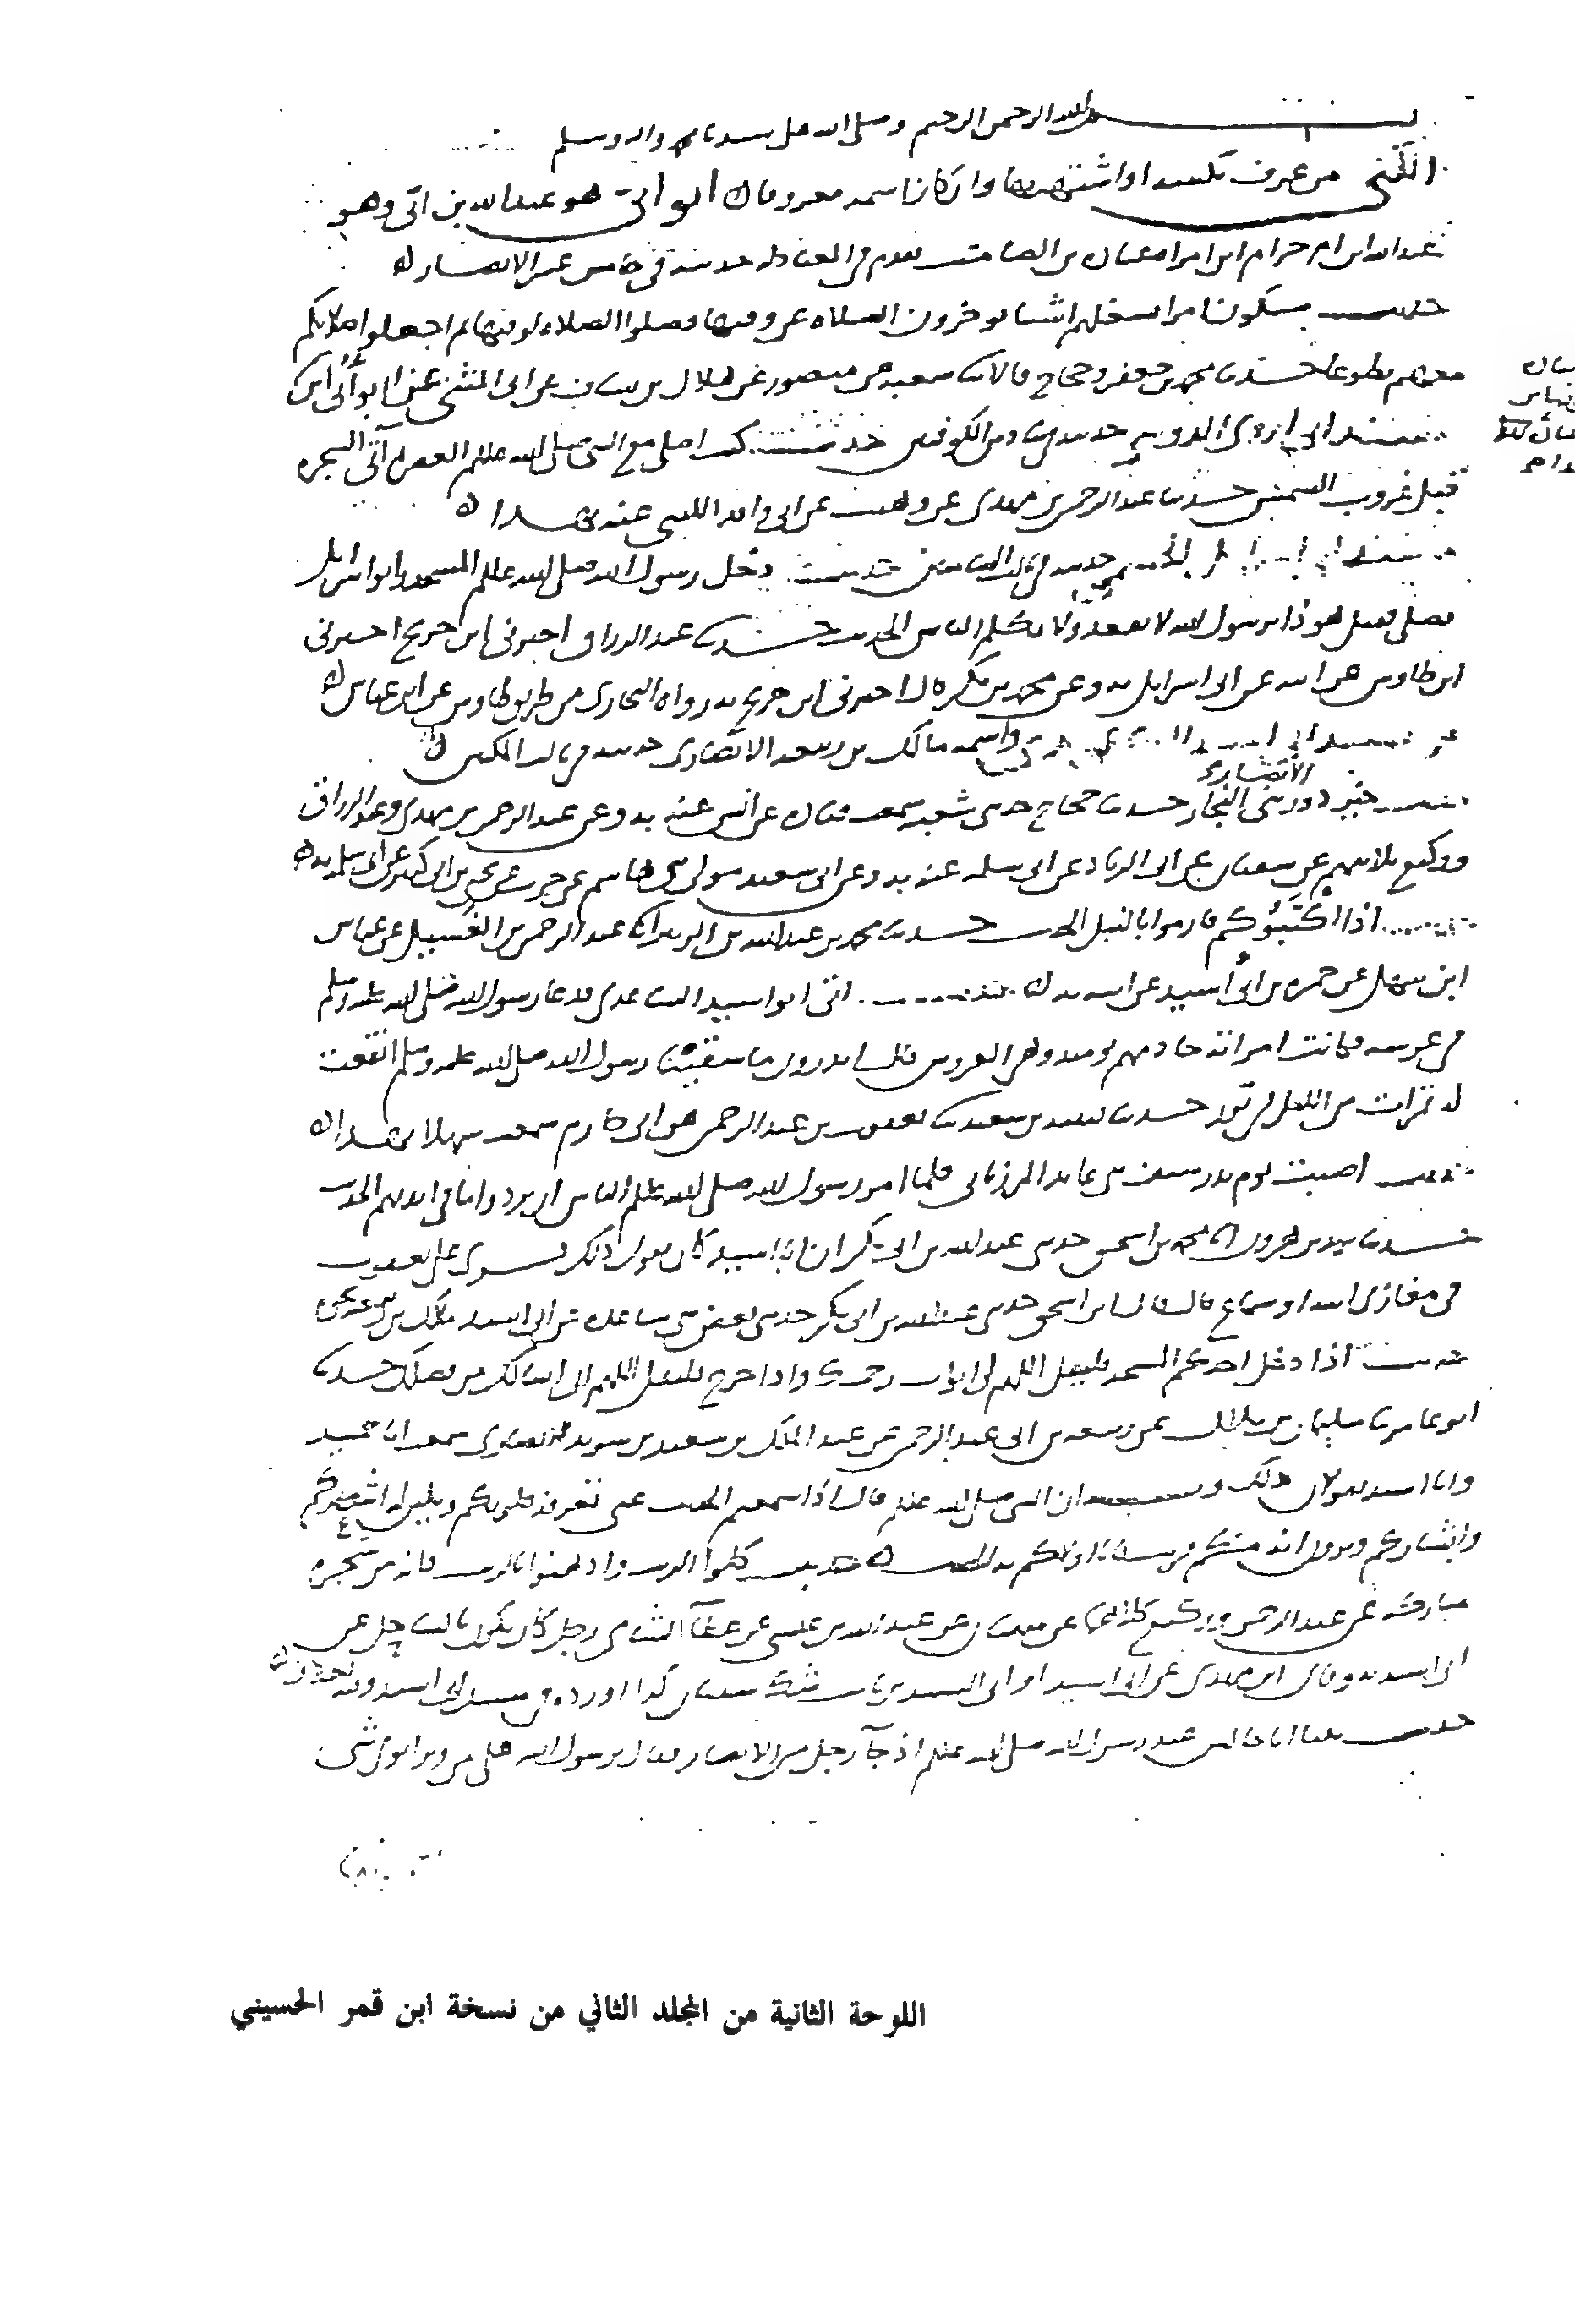 بسم الله الرحمن الرحيم وصلى الله على سيدنا محمد واله وسلم
الكنى من عرف بكنيته او اشتهر بها وان كان اسمه معروفا ابو ابي هو عبد الله بن ابي وهو
عبد الله ابن ام حرام ابن امراة عبادة بن الصامت تقدم في العبادلة حديثه في خامس عشر الانصار
حديث سيكون امرا تشغلهم اشيا يوخرون الصلاة عن وقتها فصلوا الصلاة لوقتها ثم اجعلوا صلاتكم
معهم تطوعا حدثنا محمد بن جعفر وحجاج قالا ثنا شعبة عن منصور عن هلال بن يساف عن ابي المثنى عن ابو أبي ابن
مسند ابي اروى الدوسي حديثه في الكوفيين حديث كنت اصلي مع النبي صلى الله عليه وسلم العصر ثم آتي الشجرة
قبل غروب الشمس حدثنا عبد الرحمن بن مهدي عن وهيب عن ابي واقد الليثي عنه بهذا
مسند حديثه في حديث دخل رسول الله صلى الله عليه وسلم المسجد وابو اسرايل
يصلي فقيل هو ذا يرسول الله لا يقعد ولا يكلم الناس الحديث حدثنا عبد الرزاق اخبرني ابن جريج اخبرني
ابن طاوس عن ابيه عن ابي اسرايل به وعن محمد بن بكر قال اخبرني ابن جريج به رواه البخاري من طريق عن ابن عباس
مسند ابي اسيد واسمه مالك بن ربيعة الانصاري حديثه في المكيين
الانصار
حديث خير دور بني النجار حدثنا حجاج حدثني شعبة سمعت قتادة عن انس عنه به وعن عبد الرحمن بن مهدي وعبد الرزاق
ووكيع ثلاثتهم عن سفيان عن ابي الزناد عن ابي سلمة عنه به وعن ابي سعيد مولى بني هاشم عن حرب عن يحيى بن ابي كثير عن ابي سلمة به
اذا اكثبوكم فارموا بالنبل الحديث حدثنا محمد بن عبد الله بن الزبير انا عبد الرحمن بن الغسيل عن عباس
ابن سهل عن حمزة بن ابي أسيد عن ابيه به حديث اتى ابو اسيد الساعدي فدعا رسول الله صلى الله عليه وسلم
في عرسه فكانت امراته خادمهم يوميذ وهي العروس قالت اتدرون ما سقيت رسول الله صلى الله عليه وسلم انقعت
له تمرات من الليل في تور حدثنا قتيبة بن سعيد ثنا يعقوب بن عبد الرحمن عن ابي حازم سمعت سهلا بهذا
حديث اصبت يوم بدر سيف بن عابد المرزبان فلما امر رسول الله صلى الله عليه وسلم الناس ان يردوا ما في ايديهم الحديث
حدثنا يزيد بن هرون انا محمد بن اسحق حدثني عبد الله بن ابي بكر ان ابا اسيد كان يقول ذلك قرى على يعقوب
في مغازي ابيه او سماع قال قال ابن اسحق حدثني عبد الله بن ابي بكر حدثني بعض بني ساعدة عن ابي اسيد مالك بن ربيعة
حديث اذا دخل احدكم المسجد فليقل اللهم افتح لي ابواب رحمتك واذا خرج فليقل اللهم اني اسالك من فضلك حدثنا
ابو عامر ثنا سليمان بن بلال عن ربيعة بن ابي عبد الرحمن عن عبد الملك بن سعيد بن سويد الانصاري سمعت ابا حميد
وابا اسيد يقولان ذلك وبه ان النبي صلى الله عليه وسلم قال اذا سمعتم الحديث عني تعرفه قلوبكم وتلين له اشعاركم
وابشاركم وترون انه منكم قريب فانا اولاكم به الحديث حديث كلوا الزيت وادهنوا بالزيت فانه من شجرة
مباركة عن عبد الرحمن ووكيع كلاهما عن سفيان عن عبد الله بن عيسى عن عطآ الشامي رجل كان يكون بالساحل عن
ابي اسيد به وقال ابن مهدي عن ابي اسيد او ابي اسيد بن ثابت شك سفيان كذا اورده في مسند ابي اسيد
حديث بينما انا جالس عند رسول الله صلى الله عليه وسلم اذ جآ رجل من الانصار فقال يرسول الله هل بقي من بر ابوي شي
اللوحة الثانية من المجلد الثاني من نسخة ابن قمر الحسيني